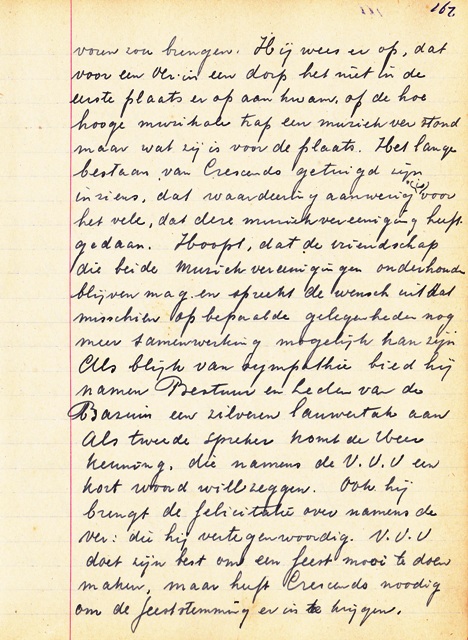 162
voren zou brengen. Hij wees er op, dat
voor een Ver. in een dorp het niet in de
eerste plaats er op aan kwam, of de hoe
hooge muzikale trap een muziekver stond
maar wat zij is voor de plaats. Het lange
bestaan van Crescendo getuigd zijn
inziens, dat waardeering aanwezig (is) voor
het vele, dat deze muziekvereeniging heeft
gedaan. Hoopt, dat de vriendschap
die beide Muziekvereenigingen onderhouden
blijven mag en spreekt de wensch uit dat
misschien op bepaalde gelegenheden nog
meer samenwerking mogelijk kan zijn
Als blijk van sympathie bied hij
namen Bestuur en Leden van de
Bazuin een zilveren lauwertak aan
Als tweede spreker komt de Heer
Kenning, die namens de V.V.V een
kort woord will zeggen. Ook hij
brengt de felicitatie over namens de
Ver: die hij vertegenwoordig. V.V.V
doet zijn best om een feest mooi te doen
maken, maar heeft Crescendo noodig
om de feeststemming er in te krijgen.